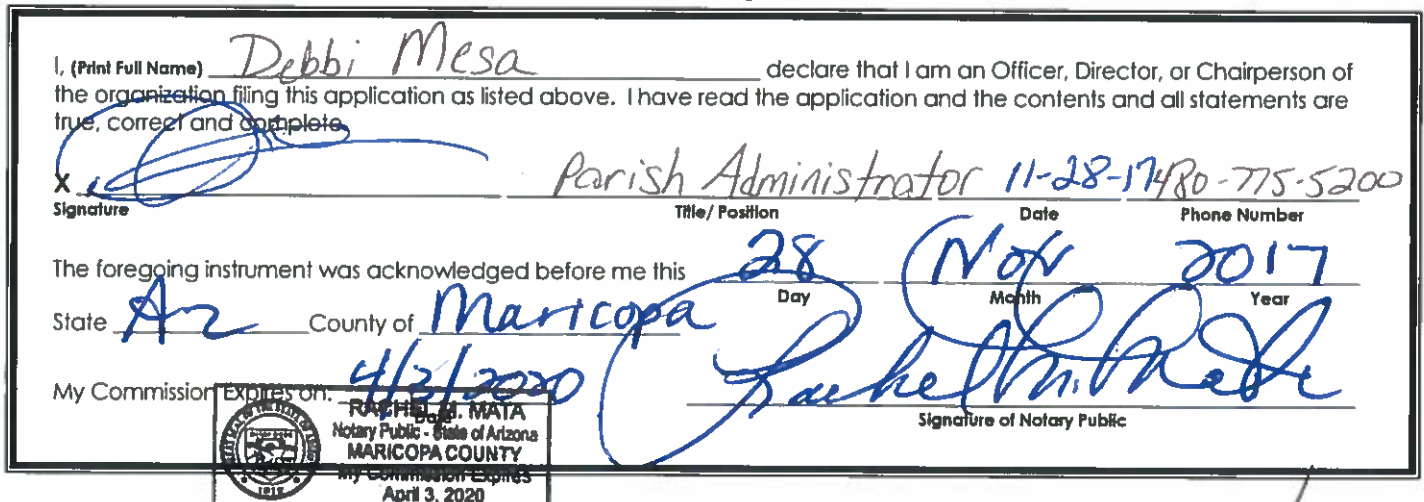 I, (Print Full Name) Debbi Mesa declare that I am an Officer, Director, or Chairperson of
the organization filing this application as listed above. I have read the application and the contents and all statements are
true, correct and complete.
X Parish Administrator 11-28-17 480-775-5200
Signature Title/ Position Date Phone Number
The foregoing instrument was acknowledged before me this 28 Nov 2017
Day Month Year
State Az County of Maricopa
My Commission Expires on: 4/3/2020 Rachel M. Mata
Date Signature of Notary Public
RACHEL M. MATA
Notary Public - State of Arizona
MARICOPA COUNTY
My Commission Expires
April 3, 2020
1912